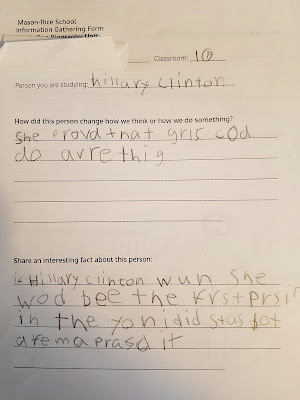 Mason-Rice School
Information Gathering Form
Classroom: 10
Person you are studying: hillary clinton
How did this person change how we think or how we do something?
She provd that gris cod
do avre thig
Share an interesting fact about this person:
if Hillary clinton wun She
wod bee the frst prsin
in the yonidid stas tot
are ma prasd it